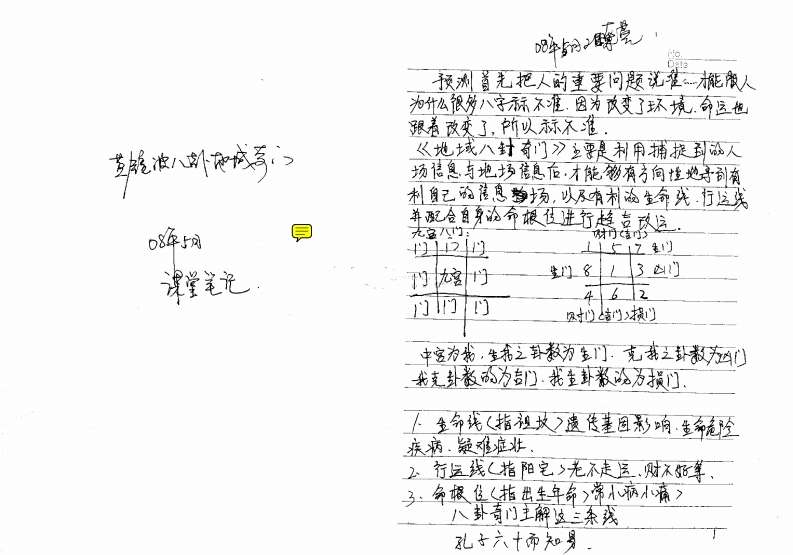 八卦地域奇门
08年5月
课堂笔记
08年5月
No.
Date
预测首先把人的重要问题说准……才能服人
为什么很多八字标不准、因为改变了环境、命运也
跟着改变了,所以标不准.
《地域八卦奇门》主要是利用捕捉到的人
场信息与地场信息后、才能够有方向性地寻到有
利自己的信息场,以及有利的生命线、行运线
并配合自身的命根位进行趋吉改运.
九宫八门: 财门(吉门)
门 门 门 1 5 7 生门
门 九宫 门 生门 8 1 3 凶门
门 门 门 4 6 2
财门(吉门)损门
中宫为我,生我之卦数为生门、克我之卦数为凶门
我克卦数的为吉门、我生卦数的为损门、
1. 生命线(指祖坟)遗传基因影响、生命危险
疾病、疑难症状.
2. 行运线(指阳宅)老不走运、财不好等、
3、命根位(指出生年命)常小病小痛)
八卦奇门主解这三条线
孔子六十而知易.
1